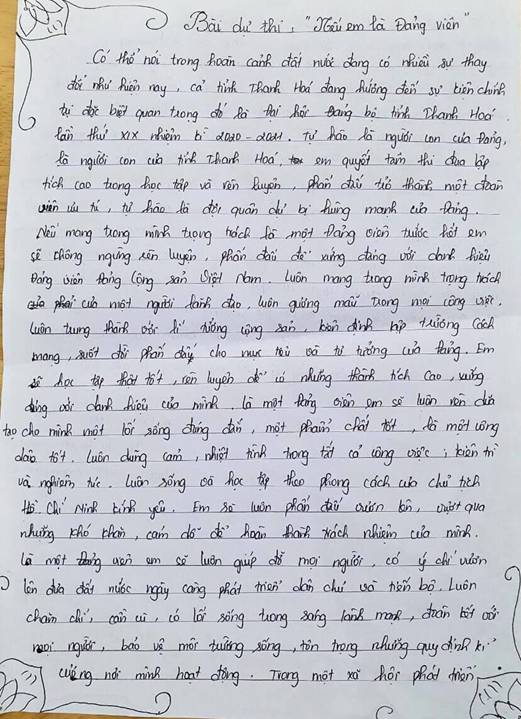 Bài dự thi: "Nếu em là Đảng viên"
Có thể nói trong hoàn cảnh đất nước đang có nhiều sự thay
đổi như hiện nay, cả tỉnh Thanh Hoá đang hướng đến sự kiện chính
trị đặc biệt quan trọng đó là Đại hội Đảng bộ tỉnh Thanh Hoá
lần thứ XIX nhiệm kì 2020-2021. Tự hào là người con của Đảng,
là người con của tỉnh Thanh Hoá, em quyết tâm thi đua lập
tích cao trong học tập và rèn luyện, phấn đấu trở thành một đoàn
viên ưu tú, tự hào là đội quân dự bị hùng mạnh của Đảng.
Nếu mang trong mình trọng trách là một Đảng viên trước hết em
sẽ không ngừng rèn luyện, phấn đấu để xứng đáng với danh hiệu
Đảng viên Đảng Cộng sản Việt Nam. Luôn mang trong mình trọng trách
của một người lãnh đạo, luôn gương mẫu trong mọi công việc.
Luôn trung thành với lí tưởng cộng sản, kiên định lập trường cách
mạng, suốt đời phấn đấu cho mục tiêu và tư tưởng của Đảng. Em
sẽ học tập thật tốt, rèn luyện để có những thành tích cao, xứng
đáng với danh hiệu của mình. Là một Đảng viên em sẽ luôn rèn dũa
tạo cho mình một lối sống đúng đắn, một phẩm chất tốt, đề một công
dân tốt. Luôn dũng cảm, nhiệt tình trong tất cả công việc; kiên trì
và nghiêm túc. Luôn sống và học tập theo phong cách của chủ tịch
Hồ Chí Minh kính yêu. Em sẽ luôn phấn đấu vươn lên, vượt qua
những khó khăn, cám dỗ để hoàn thành trách nhiệm của mình.
Là một Đảng viên em sẽ luôn giúp đỡ mọi người, có ý chí vươn
lên đưa đất nước ngày càng phát triển dân chủ và tiến bộ. Luôn
chăm chỉ, cần cù, có lối sống trong sáng lành mạnh, đoàn kết với
mọi người, bảo vệ môi trường sống, tôn trọng những quy định kỉ
cương nơi mình hoạt động. Trong một xã hội phát triển